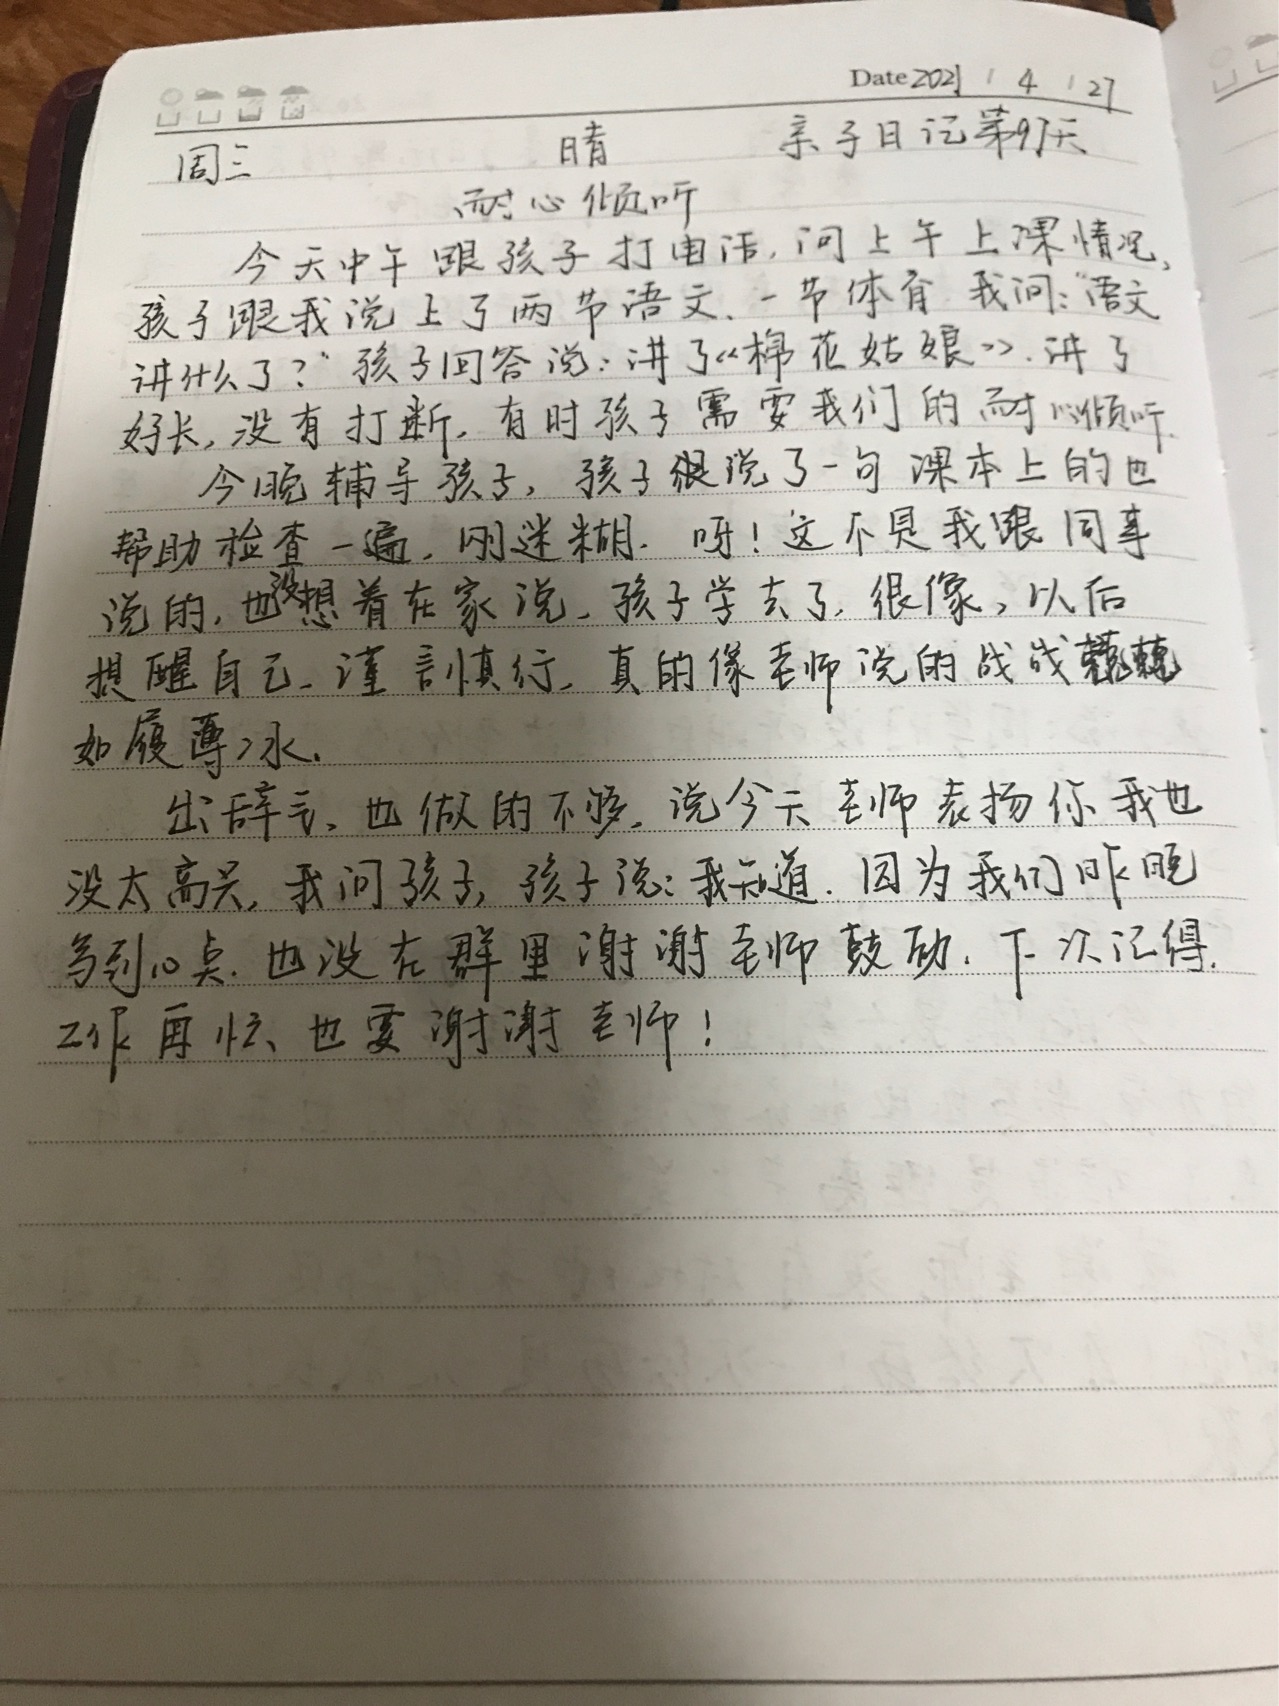 Date 2021 / 4 / 27
周三 晴 亲子日记第97天
耐心倾听
今天中午跟孩子打电话,问上午上课情况,
孩子跟我说上了两节语文、一节体育 我问:“语文
讲什么了?”孩子回答说:讲了《棉花姑娘》.讲了
好长,没有打断,有时孩子需要我们的耐心倾听.
今晚辅导孩子,孩子很说了一句课本上的也
帮助检查一遍,刚迷糊.呀!这不是我跟同事
说的,也没想着在家说,孩子学去了,很像,以后
提醒自己,谨言慎行,真的像老师说的战战兢兢
如履薄冰.
出辞言,也做的不够,说今天老师表扬你我也
没太高兴,我问孩子,孩子说:我知道.因为我们昨晚
写到10点.也没在群里谢谢老师鼓励.下次记得.
工作再忙、也要谢谢老师!